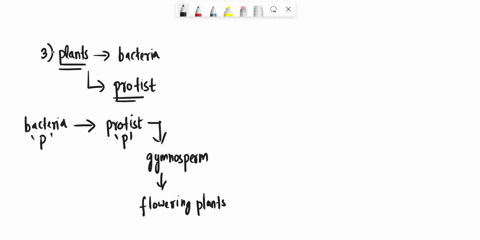 3) plants → bacteria
protist
bacteria → protist
'p' 'p'
gymnosperm
flowering plants